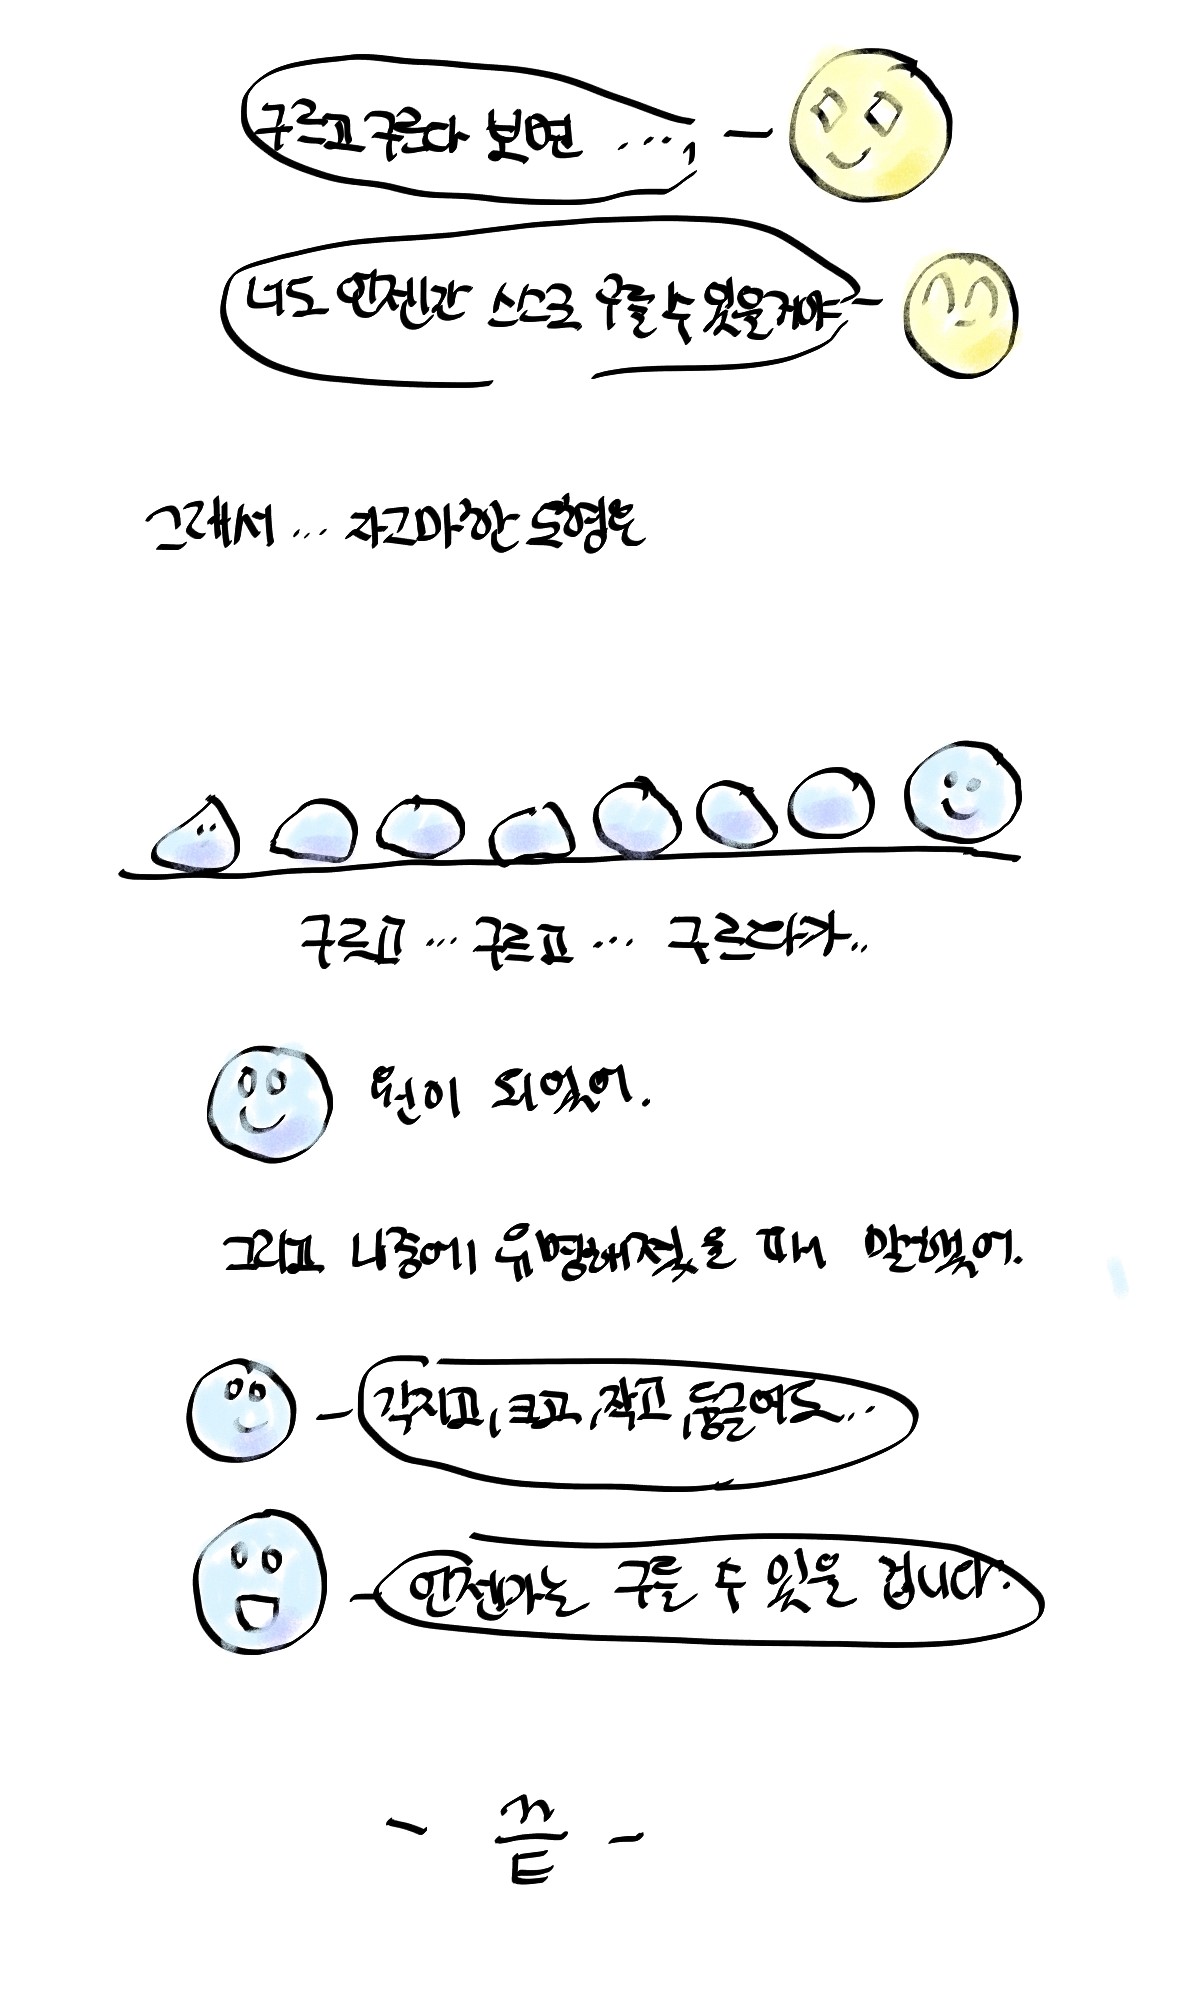 구르고 구르다 보면 ...,
너도 언젠간 스스로 구를 수 있을거야
그래서 ... 자그마한 도형은
구르고 ... 구르고 ... 구르다가..
원이 되었어.
그리고 나중에 유명해졌을 때 말했어.
각지고, 크고, 작고, 둥글어도...
언젠가는 구를 수 있을 겁니다.
- 끝 -